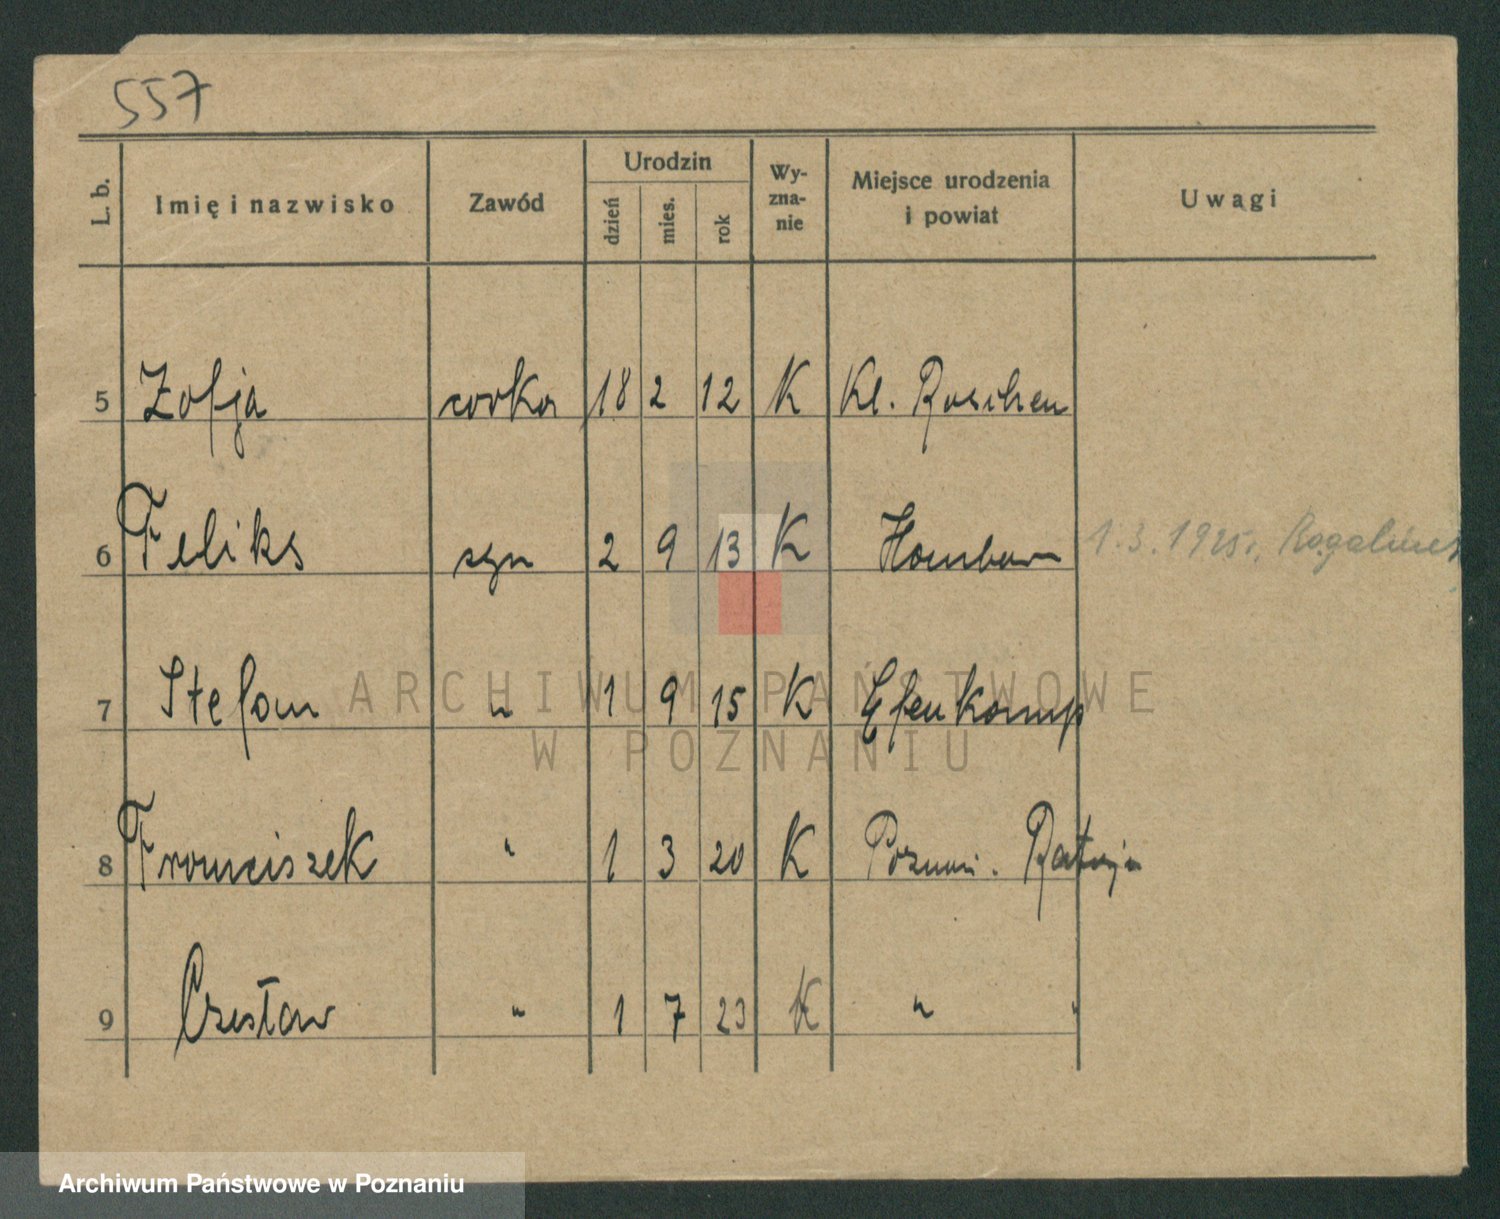 557
L. b.
Imię i nazwisko
Zawód
Urodzin
dzień
mies.
rok
Wy-
zna-
nie
Miejsce urodzenia
i powiat
Uwagi
5 Zofja corka 18 2 12 K Kl. Roschen
6 Feliks syn 2 9 13 K 1.3.1925r.
7 Stefan " 1 9 15 K
8 Franciszek " 1 3 20 K Poznań. Rataje
9 Czesław " 1 7 23 K " "
ARCHIWUM PAŃSTWOWE
W POZNANIU
Archiwum Państwowe w Poznaniu